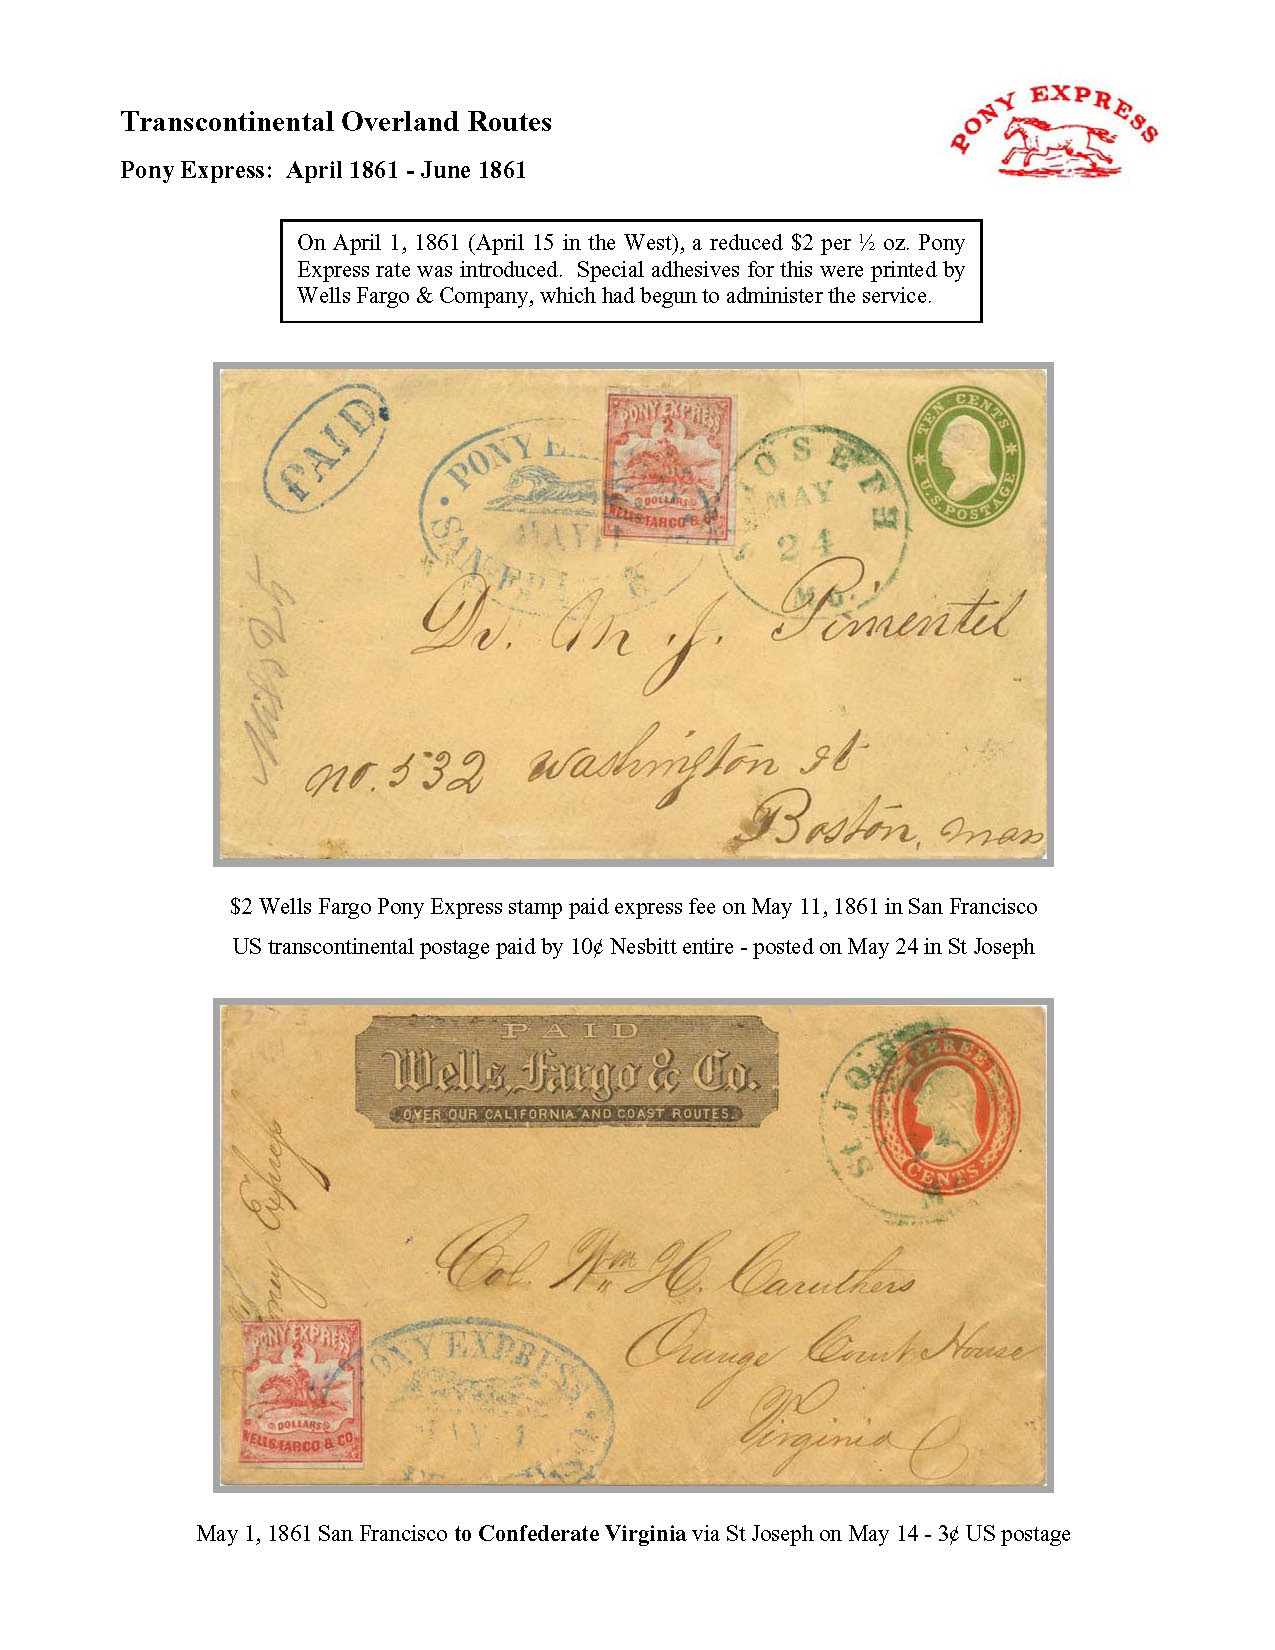 Transcontinental Overland Routes
PONY EXPRESS
Pony Express: April 1861 - June 1861
On April 1, 1861 (April 15 in the West), a reduced $2 per ½ oz. Pony
Express rate was introduced. Special adhesives for this were printed by
Wells Fargo & Company, which had begun to administer the service.
PAID
PONY EXPRESS
2
DOLLARS
WELLS, FARGO & CO
PONY E
MAY 11
SAN FR
JOSEPH
MAY
24
MO.
TEN CENTS
U.S. POSTAGE
Dr. M. J. Pimentel
no. 532 Washington St
Boston, Mass
$2 Wells Fargo Pony Express stamp paid express fee on May 11, 1861 in San Francisco
US transcontinental postage paid by 10¢ Nesbitt entire - posted on May 24 in St Joseph
PAID
Wells, Fargo & Co.
OVER OUR CALIFORNIA AND COAST ROUTES.
St JO
THREE
CENTS
Pony Express
Col. Wm H. Caruthers
Orange Court House
Virginia
PONY EXPRESS
2
DOLLARS
WELLS, FARGO & CO.
PONY EXPRESS
MAY 1
May 1, 1861 San Francisco to Confederate Virginia via St Joseph on May 14 - 3¢ US postage